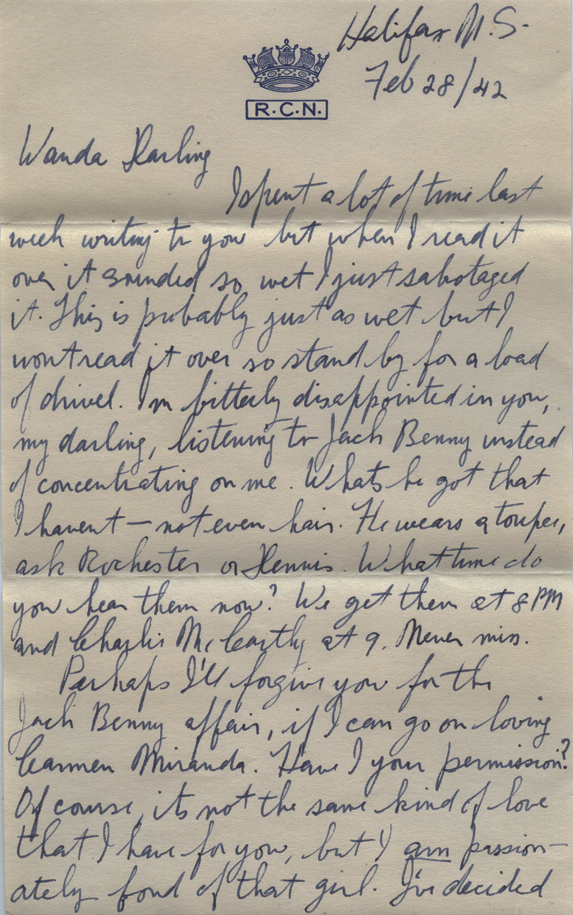 Halifax N.S.
Feb 28/42
R.C.N.
Wanda Darling
I spent a lot of time last
week writing to you but when I read it
over it sounded so wet I just sabotaged
it. This is probably just as wet but I
wont read it over so stand by for a load
of drivel. Im bitterly disappointed in you,
my darling, listening to Jack Benny instead
of concentrating on me. Whats he got that
I havent — not even hair. He wears a toupee,
ask Rochester or Dennis. What time do
you hear them now? We get them at 8 PM
and Charlie McCarthy at 9. Never miss.
Perhaps I'll forgive you for the
Jack Benny affair, if I can go on loving
Carmen Miranda. Have I your permission?
Of course, its not the same kind of love
that I have for you, but I am passion-
ately fond of that girl. I've decided